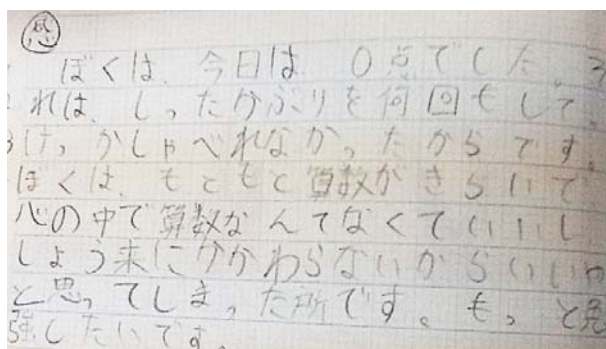 感
ぼくは、今日は、0点でした。そ
れは、しったかぶりを何回もして、
けっかしゃべれなかったからです。
ぼくは、もともと算数がきらいで
心の中で算数なんてなくていいし
しょう来に分かわらないからいいや
と思ってしまった所です。もっと勉
強したいです。